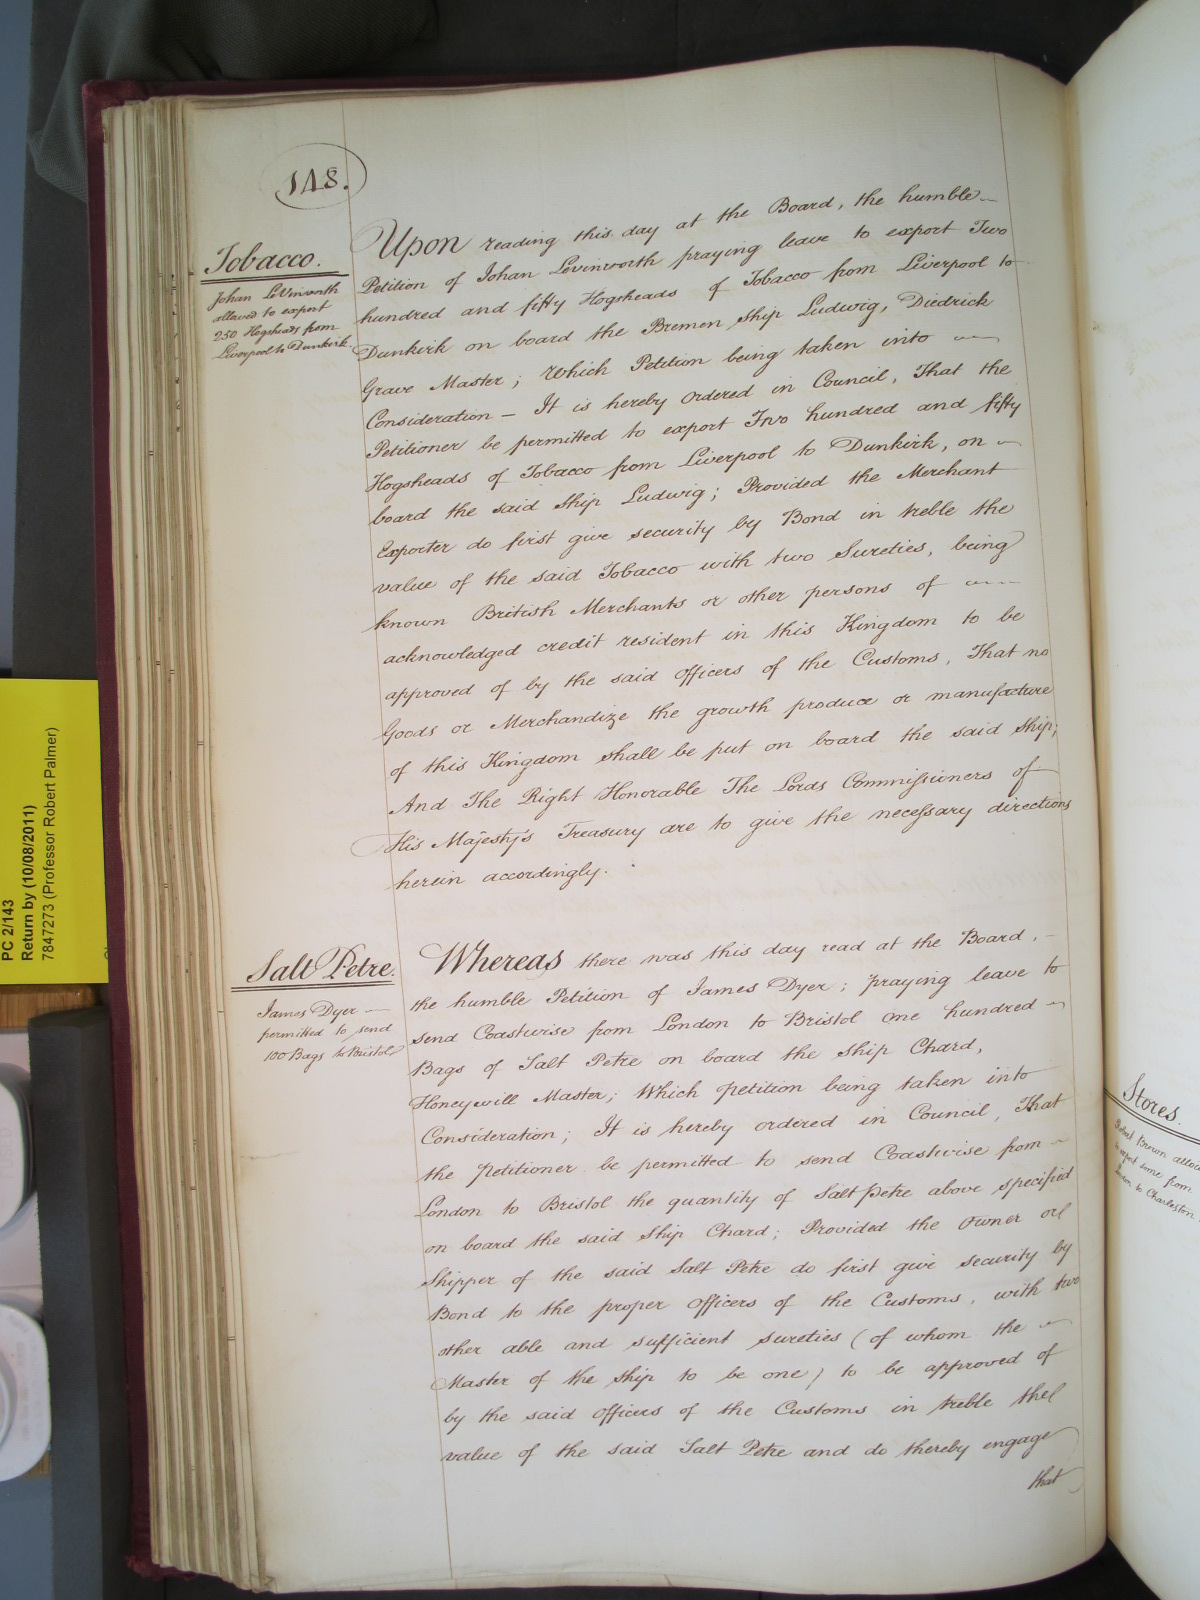 148.
Tobacco.
Johan LeVinworth
allowed to export
250 Hogsheads from
Liverpool to Dunkirk.
Upon reading this day at the Board, the humble
Petition of Johan Levinworth praying leave to export Two
hundred and fifty Hogsheads of Tobacco from Liverpool to
Dunkirk on board the Bremen Ship Ludwig, Diedrick
Grave Master; Which Petition being taken into
Consideration — It is hereby Ordered in Council, That the
Petitioner be permitted to export Two hundred and fifty
Hogsheads of Tobacco from Liverpool to Dunkirk, on
board the said Ship Ludwig; Provided the Merchant
Exporter do first give security by Bond in treble the
value of the said Tobacco with two Sureties, being
known British Merchants or other persons of
acknowledged credit resident in this Kingdom to be
approved of by the said Officers of the Customs, That no
Goods or Merchandize the growth produce or manufacture
of this Kingdom shall be put on board the said Ship;
And The Right Honorable The Lords Commissioners of
His Majesty's Treasury are to give the necessary directions
herein accordingly.
Salt Petre.
James Dyer —
permitted to send
100 Bags to Bristol
Whereas there was this day read at the Board, -
the humble Petition of James Dyer; praying leave to
send Coastwise from London to Bristol One hundred
Bags of Salt Petre on board the Ship Chard,
Honeywill Master; Which petition being taken into
Consideration; It is hereby ordered in Council, That
the petitioner be permitted to send Coastwise from
London to Bristol the quantity of Salt petre above specified
on board the said Ship Chard; Provided the Owner or
Shipper of the said Salt Petre do first give security by
Bond to the proper Officers of the Customs, with two
other able and sufficient sureties (of whom the
Master of the ship to be one) to be approved of
by the said Officers of the Customs in treble the
value of the said Salt Petre and do thereby engage
that
Stores.
Brown allow
export some from
to Charleston
PC 2/143
Return by (10/08/2011)
7847273 (Professor Robert Palmer)